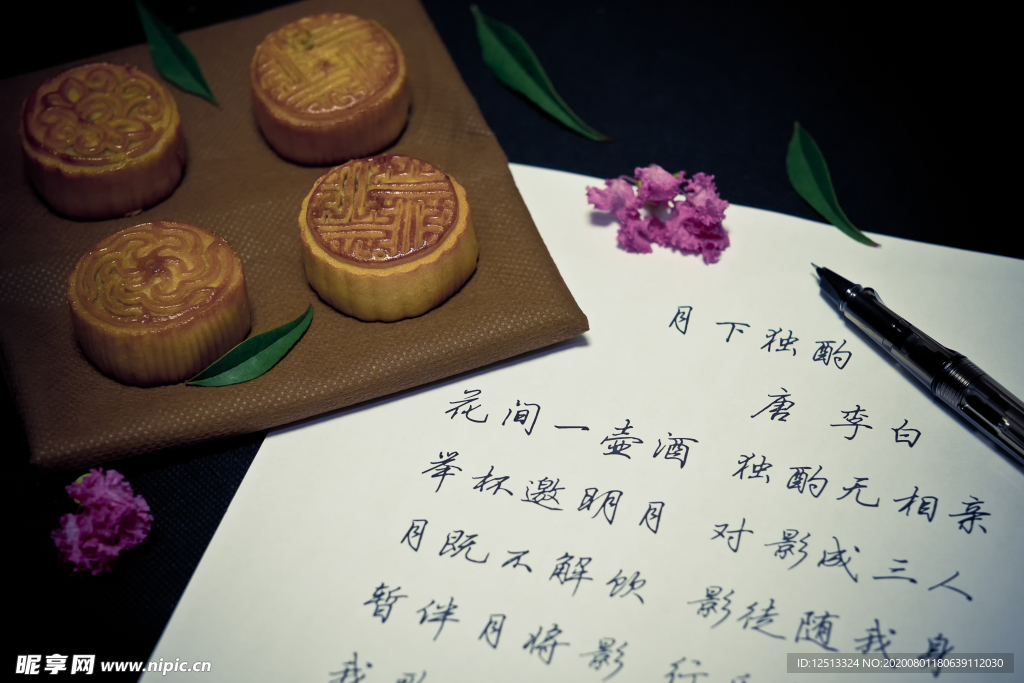 月下独酌
唐 李白
花间一壶酒 独酌无相亲
举杯邀明月 对影成三人
月既不解饮 影徒随我身
暂伴月将影 行
我
昵享网 www.nipic.cn
ID:12513324 NO:20200801180639112030